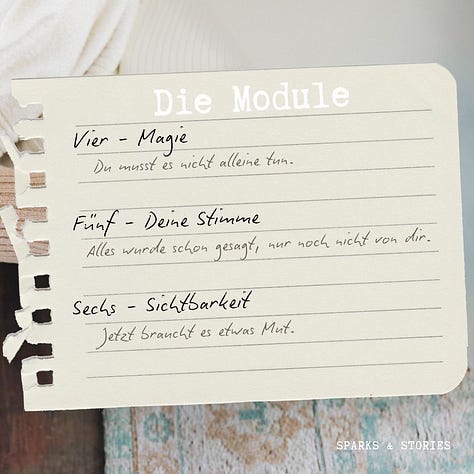 Die Module
Vier – Magie
Du musst es nicht alleine tun.
Fünf – Deine Stimme
Alles wurde schon gesagt, nur noch nicht von dir.
Sechs – Sichtbarkeit
Jetzt braucht es etwas Mut.
SPARKS & STORIES